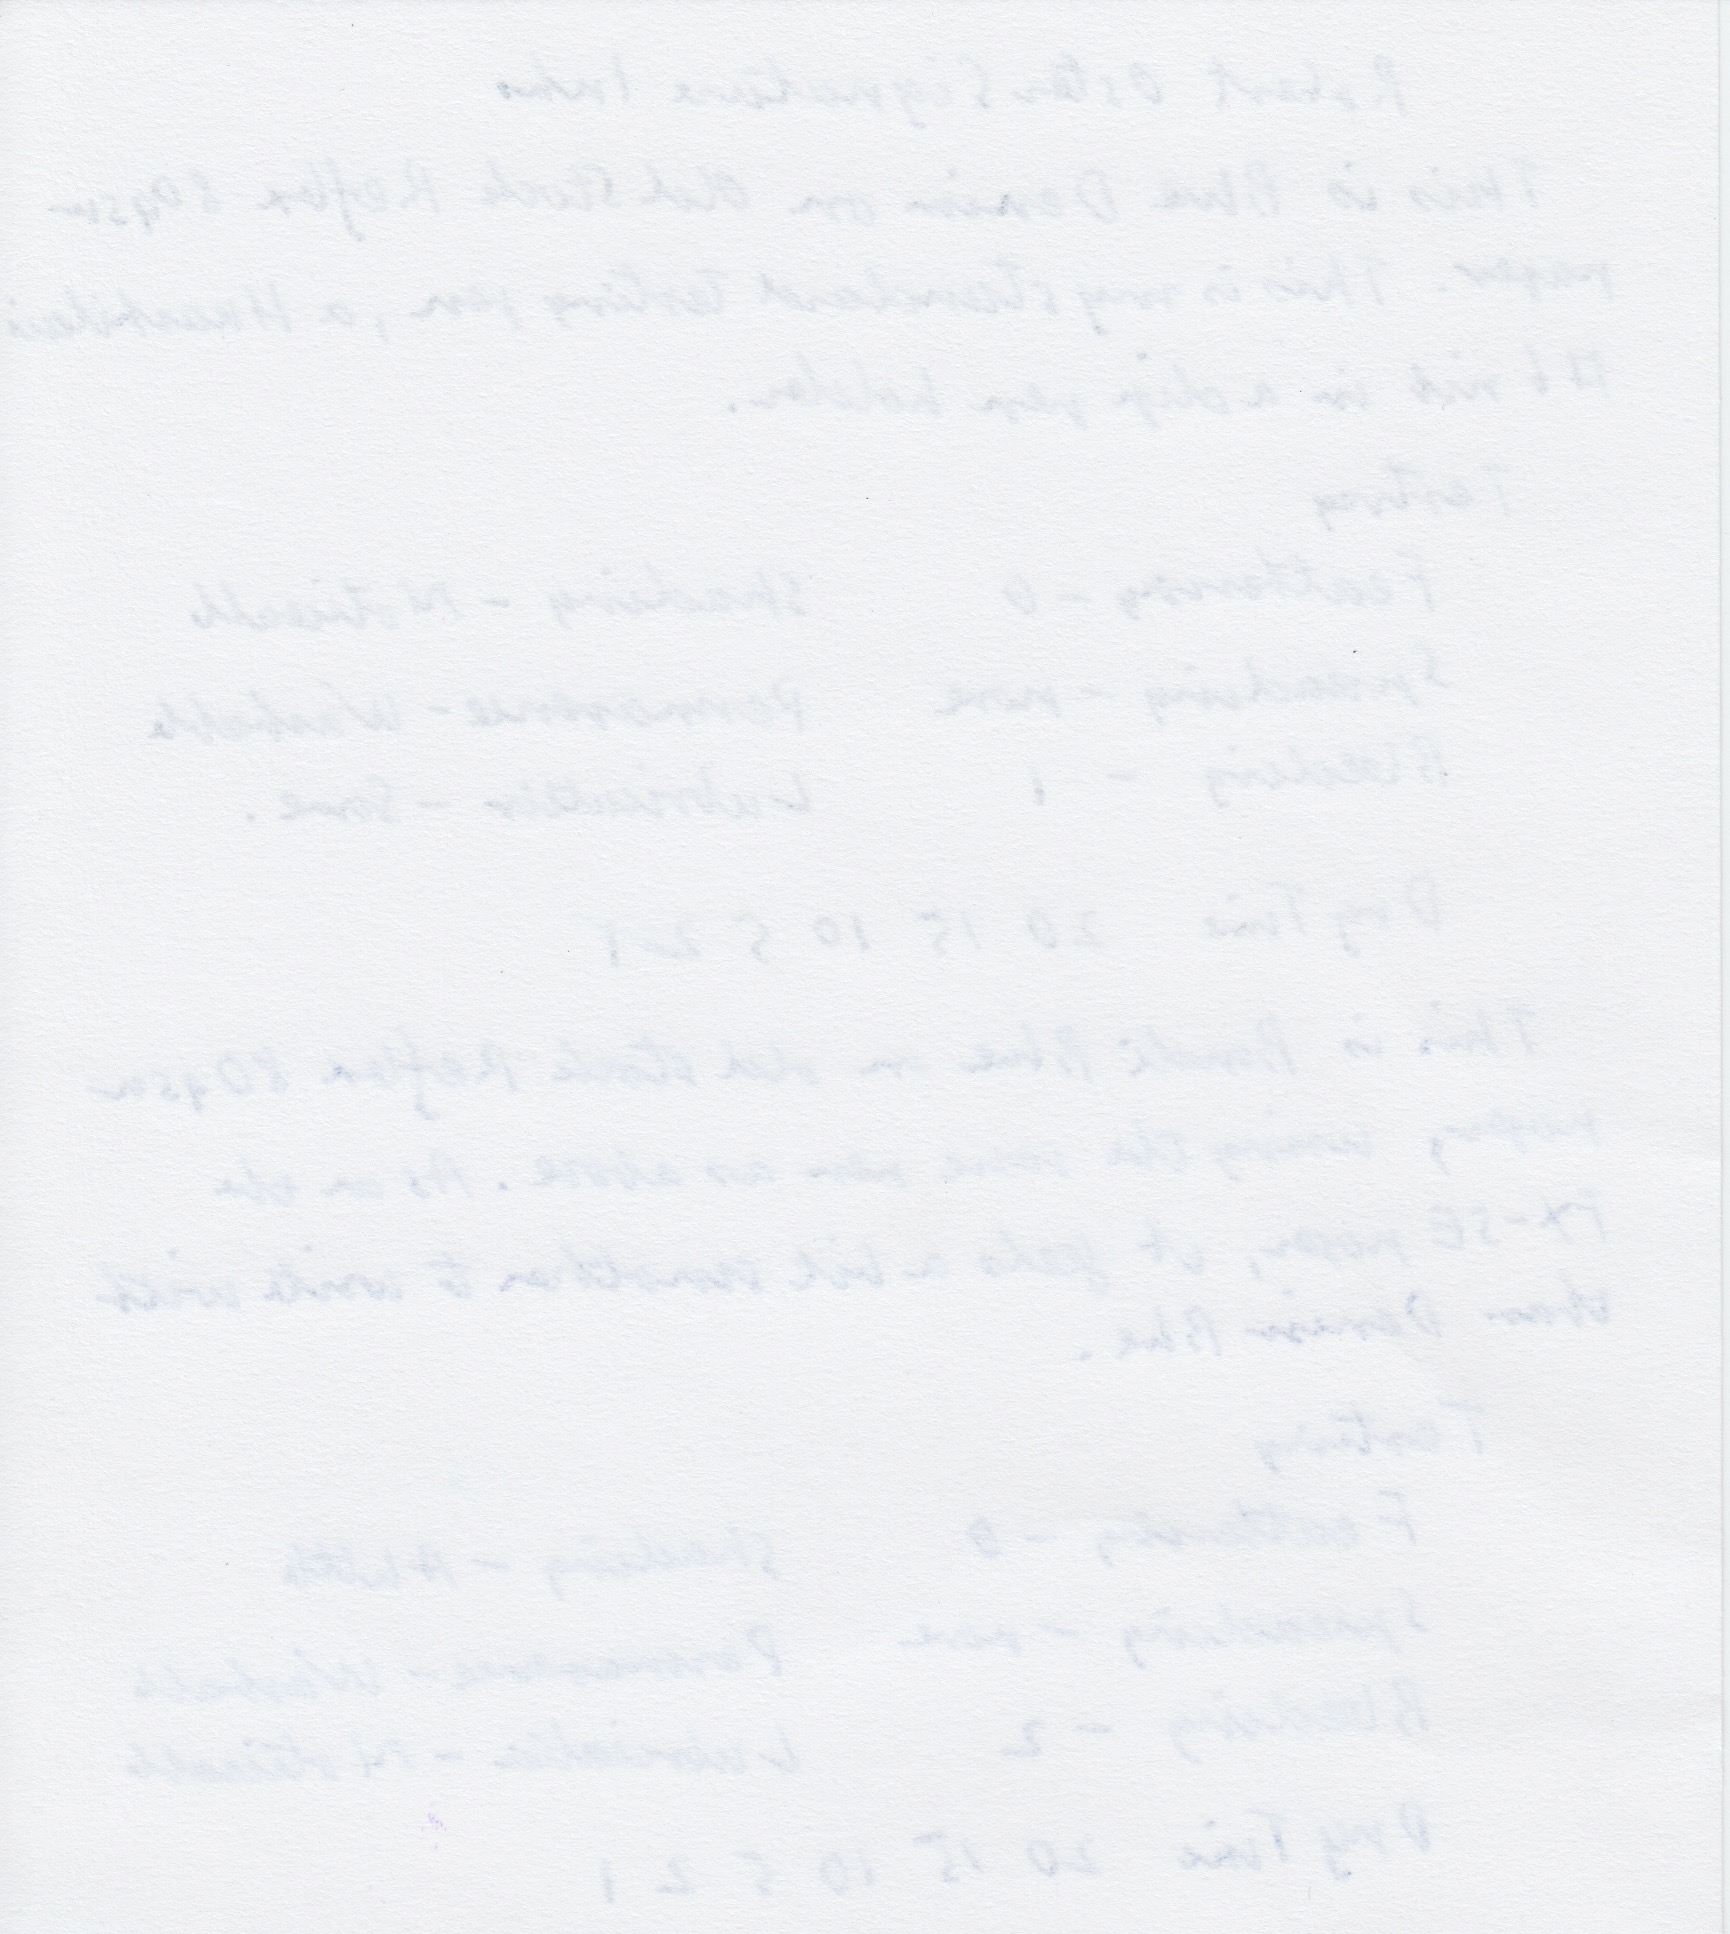 Robert Oster Signature Inks
This is Blue Denim on Old Stock Reflex 80gsm
paper. This is my standard testing pen, a Huashilai
#6 nib in a dip pen holder.
Testing
Feathering - 0 Shading - Noticeable
Spreading - none Permanence - Washable
Bleeding - 1 Lubrication - Some.
Dry Time 20 15 10 5 2 1
This is Bondi Blue on old stock Reflex 80gsm
paper, using the same pen as above. As on the
TX-SE paper, it feels a bit smoother to write with
than Denim Blue.
Testing
Feathering - 0 Shading - A little
Spreading - none Permanence - Washable
Bleeding - 2 Lubrication - Noticeable
Dry Time 20 15 10 5 2 1